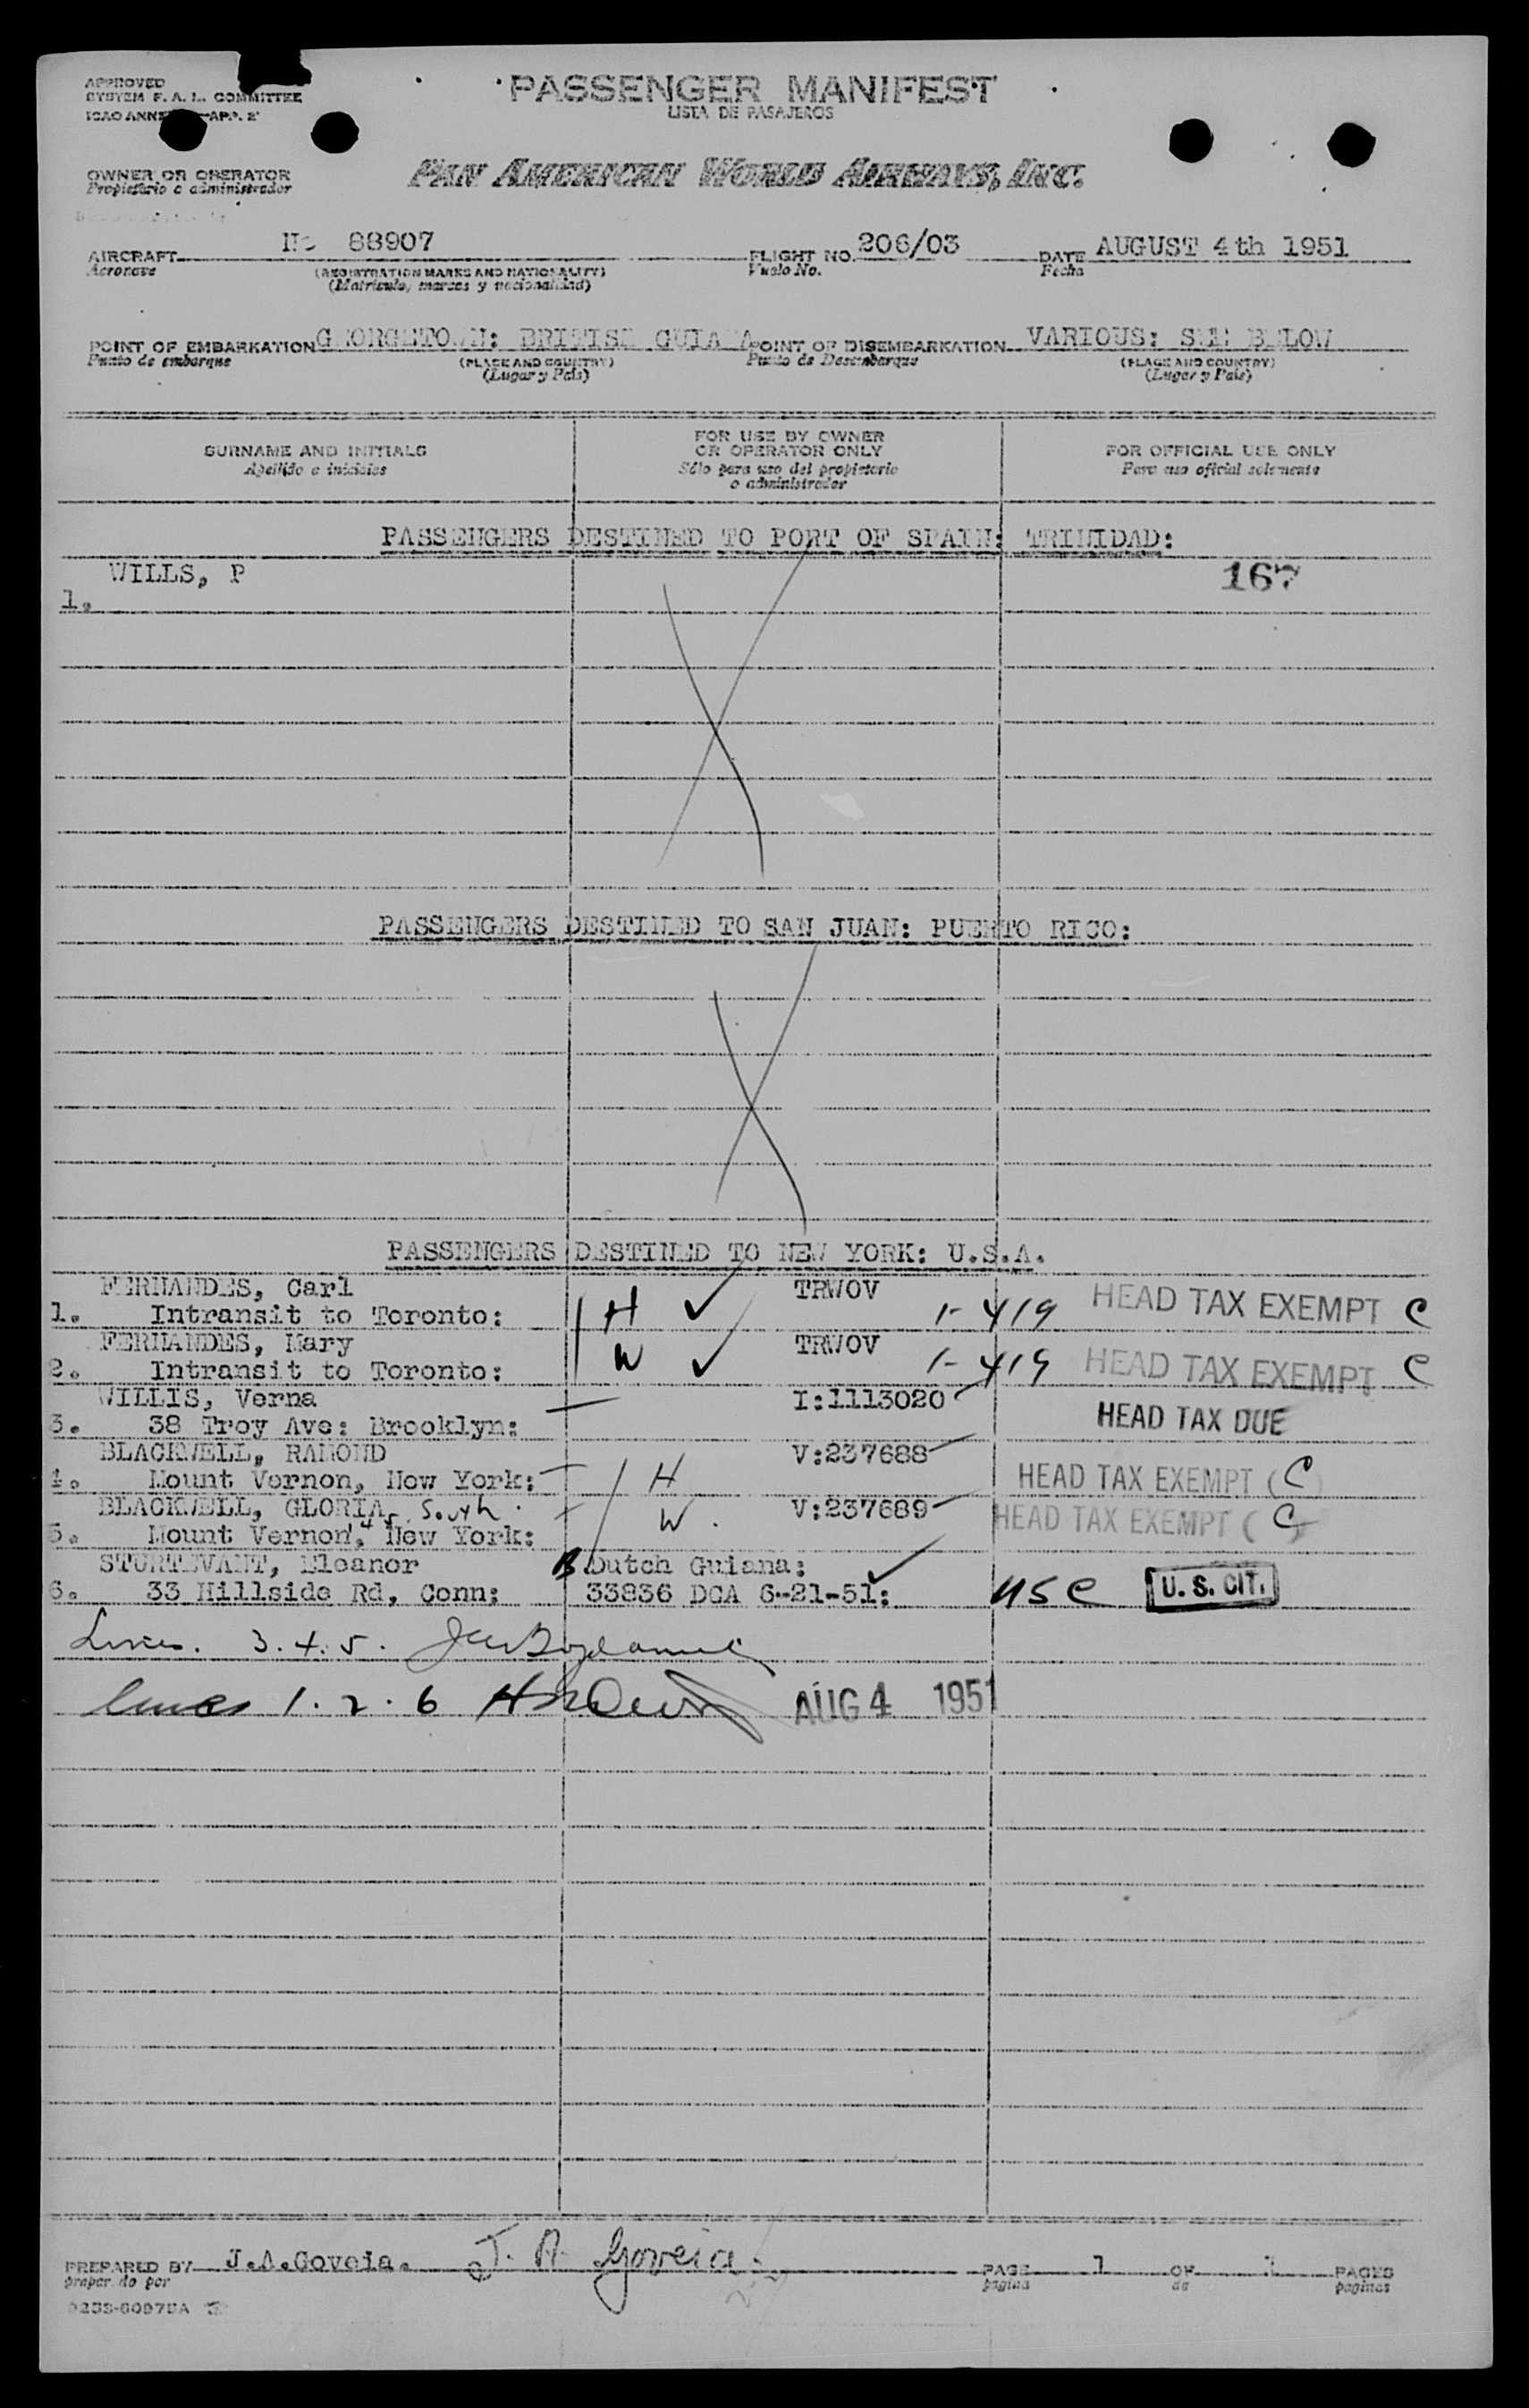 APPROVED
SYSTEM F. A. L. COMMITTEE
PASSENGER MANIFEST
LISTA DE PASAJEROS
OWNER OR OPERATOR
Propietario o administrador
PAN AMERICAN WORLD AIRWAYS, INC.
AIRCRAFT Nc 88907 FLIGHT NO. 206/03 DATE AUGUST 4th 1951
Aeronave (REGISTRATION MARKS AND NATIONALITY) Vuelo No. Fecha
(Matricula, marcas y nacionalidad)
POINT OF EMBARKATION GEORGETOWN: BRITISH GUIANA POINT OF DISEMBARKATION VARIOUS: SEE BELOW
Punto de embarque (PLACE AND COUNTRY) Punto de Desembarque (PLACE AND COUNTRY)
(Lugar y País) (Lugar y País)
SURNAME AND INITIALS FOR USE BY OWNER OR OPERATOR ONLY FOR OFFICIAL USE ONLY
Apellido e iniciales Sólo para uso del propietario o administrador Para uso oficial solamente
PASSENGERS DESTINED TO PORT OF SPAIN: TRINIDAD:
WILLS, P 167
1.
PASSENGERS DESTINED TO SAN JUAN: PUERTO RICO:
PASSENGERS DESTINED TO NEW YORK: U.S.A.
FERNANDES, Carl TRWOV
1. Intransit to Toronto: H ✓ 1-419 HEAD TAX EXEMPT C
FERNANDES, Mary TRWOV
2. Intransit to Toronto: W ✓ 1-419 HEAD TAX EXEMPT C
WILLIS, Verna I:1113020
3. 38 Troy Ave: Brooklyn: HEAD TAX DUE
BLACKWELL, RAMOND V:237688
4. Mount Vernon, New York: H HEAD TAX EXEMPT (C)
BLACKWELL, GLORIA South V:237689
5. Mount Vernon, New York: W. HEAD TAX EXEMPT (C)
STURTEVANT, Eleanor Dutch Guiana:
6. 33 Hillside Rd, Conn: 33836 DGA 6-21-51: ✓ USC U. S. CIT.
Lines. 3. 4. 5.
lines 1. 2. 6 AUG 4 1951
PREPARED BY J.A.Goveia. J. A. Goveia. PAGE 1 OF 1 PAGES
preparado por pagina de paginas